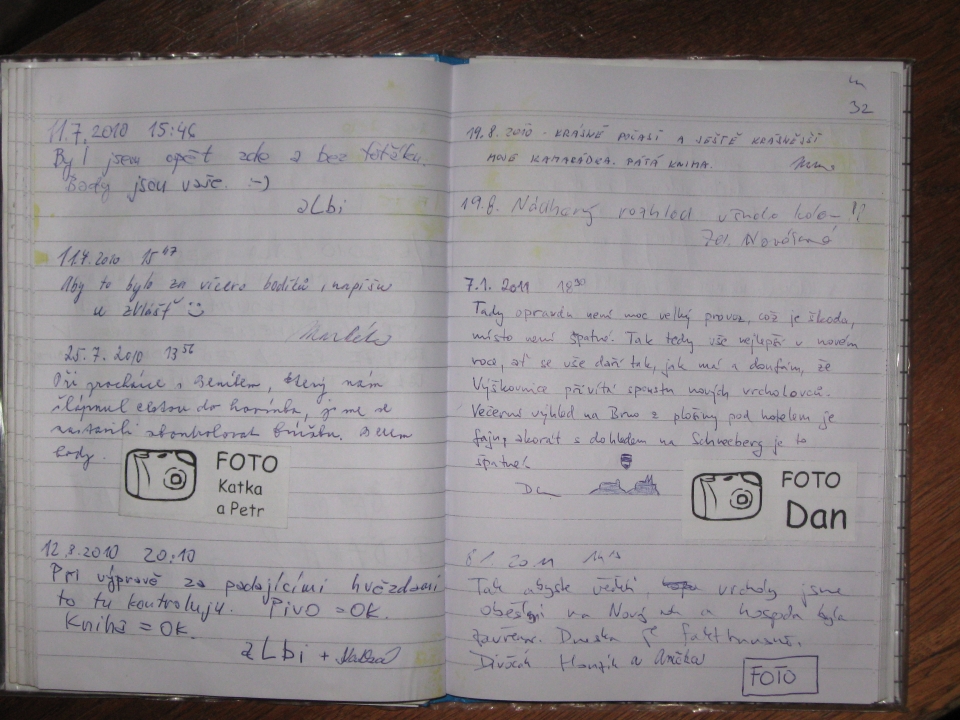 11.7.2010 15:46
Byl jsem opět zde a bez
Body jsou vaše. :-)
aLbi
11.7.2010 15 47
Aby to bylo za vícero bodíků, napíšu
u zvlášť
25.7.2010 13 56
Při procházce s Benítem, který nám
šlápnul cestou do, jsme se
zastavili zkontrolovat knížku. Berem
body.
FOTO
Katka
a Petr
12.8.2010 20:10
Při výpravě za padajícími hvězdami
to tu kontroluju. Pivo = OK.
Kniha = OK.
aLbi +
32
19.8.2010 - KRÁSNÉ POČASÍ A JEŠTĚ KRÁSNĚJŠÍ
MOJE KAMARÁDKA. PÁTÁ KNIHA.
19.8. Nádherný rozhled všude kolem !!
7.1.2011 18 30
Tady opravdu není moc velký provoz, což je škoda,
místo není špatné. Tak tedy vše nejlepší v novém
roce, ať se vše daří tak, jak má a doufám, že
Výškovnice přivítá spoustu nových vrcholovců.
Večerní výhled na Brno z plošiny pod hotelem je
fajn, akorát s dohledem na Schneeberg je to
špatné!
FOTO
Dan
8.1.2011
Tak abysk věděl, vrcholy jsme
oběšli na Nový rok a hospoda byla
zavřená. Dneska je
Divočák Honzík a Anička
FOTO